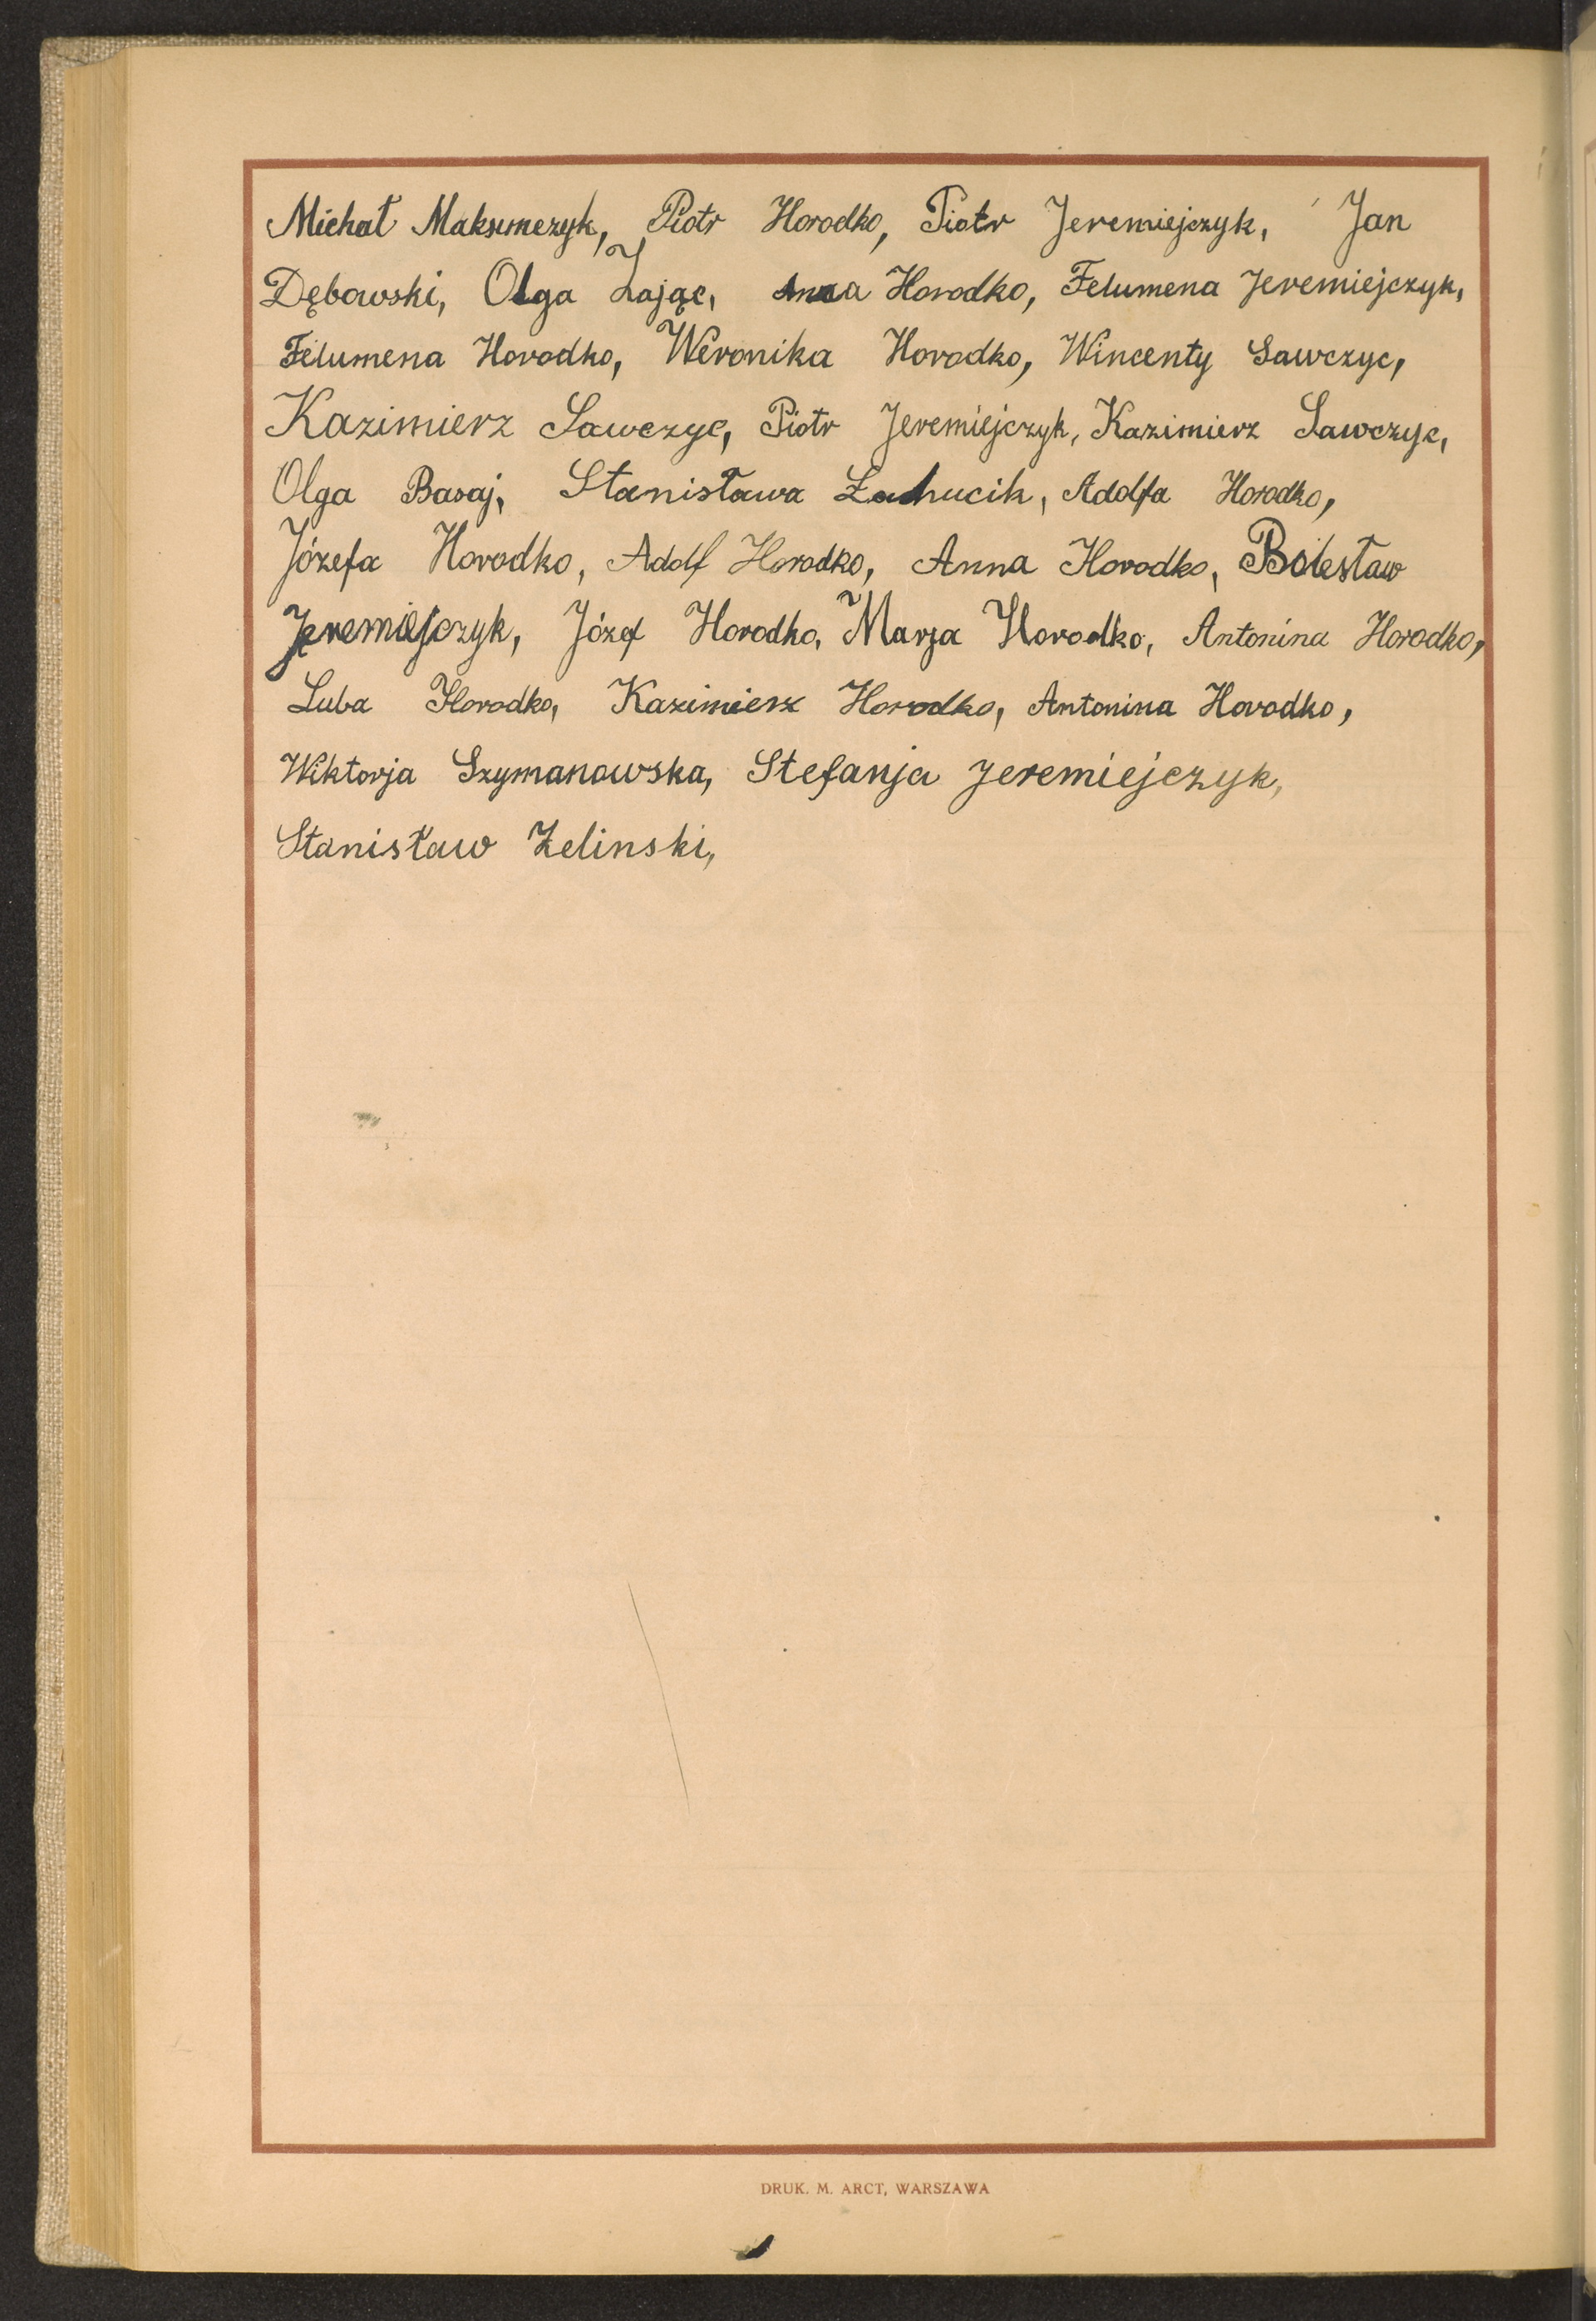 Michał Maksimczyk, Piotr Horodko, Piotr Jeremiejczyk, Jan
Dębowski, Olga Zając, Anna Horodko, Felumena Jeremiejczyk,
Felumena Horodko, Weronika Horodko, Wincenty Sawczyc,
Kazimierz Sawczyc, Piotr Jeremiejczyk, Kazimierz Sawczyc,
Olga Basaj, Stanisława Horodko, Adolfa Horodko,
Józefa Horodko, Adolf Horodko, Anna Horodko, Bolesław
Jeremiejczyk, Józef Horodko, Marja Horodko, Antonina Horodko,
Luba Horodko, Kazimierz Horodko, Antonina Horodko,
Wiktorja Szymanowska, Stefanja Jeremiejczyk,
Stanisław Zelinski,
DRUK. M. ARCT, WARSZAWA